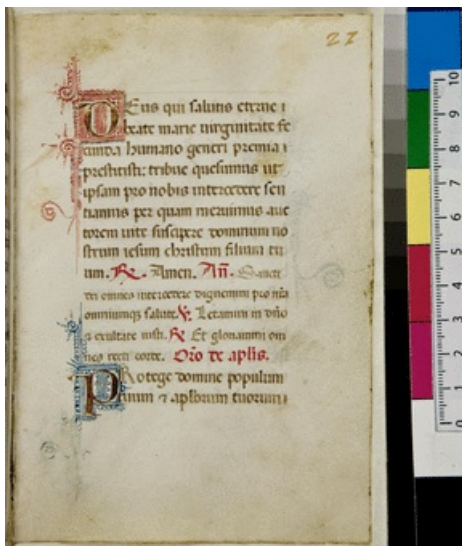 27
Deus qui salutis eterne i
beate marie uirginitate fe
cunda humano generi premia
prestitisti: tribue quesumus ut
ipsam pro nobis intercedere sen
tiamus per quam meruimus auc
torem uite suscipere dominum no
strum iesum christum filium tu
um. R. Amen. Añ. Sancti
dei omnes intercedere dignemini pro nr̄a
omniumque salute. V. Letamini in dn̄o
et exultate iusti. R. Et gloriamini om
nes recti corde. Or̄o de apl̄is.
Protege domine populum
tuum et apl̄orum tuorum
0 1 2 3 4 5 6 7 8 9 10